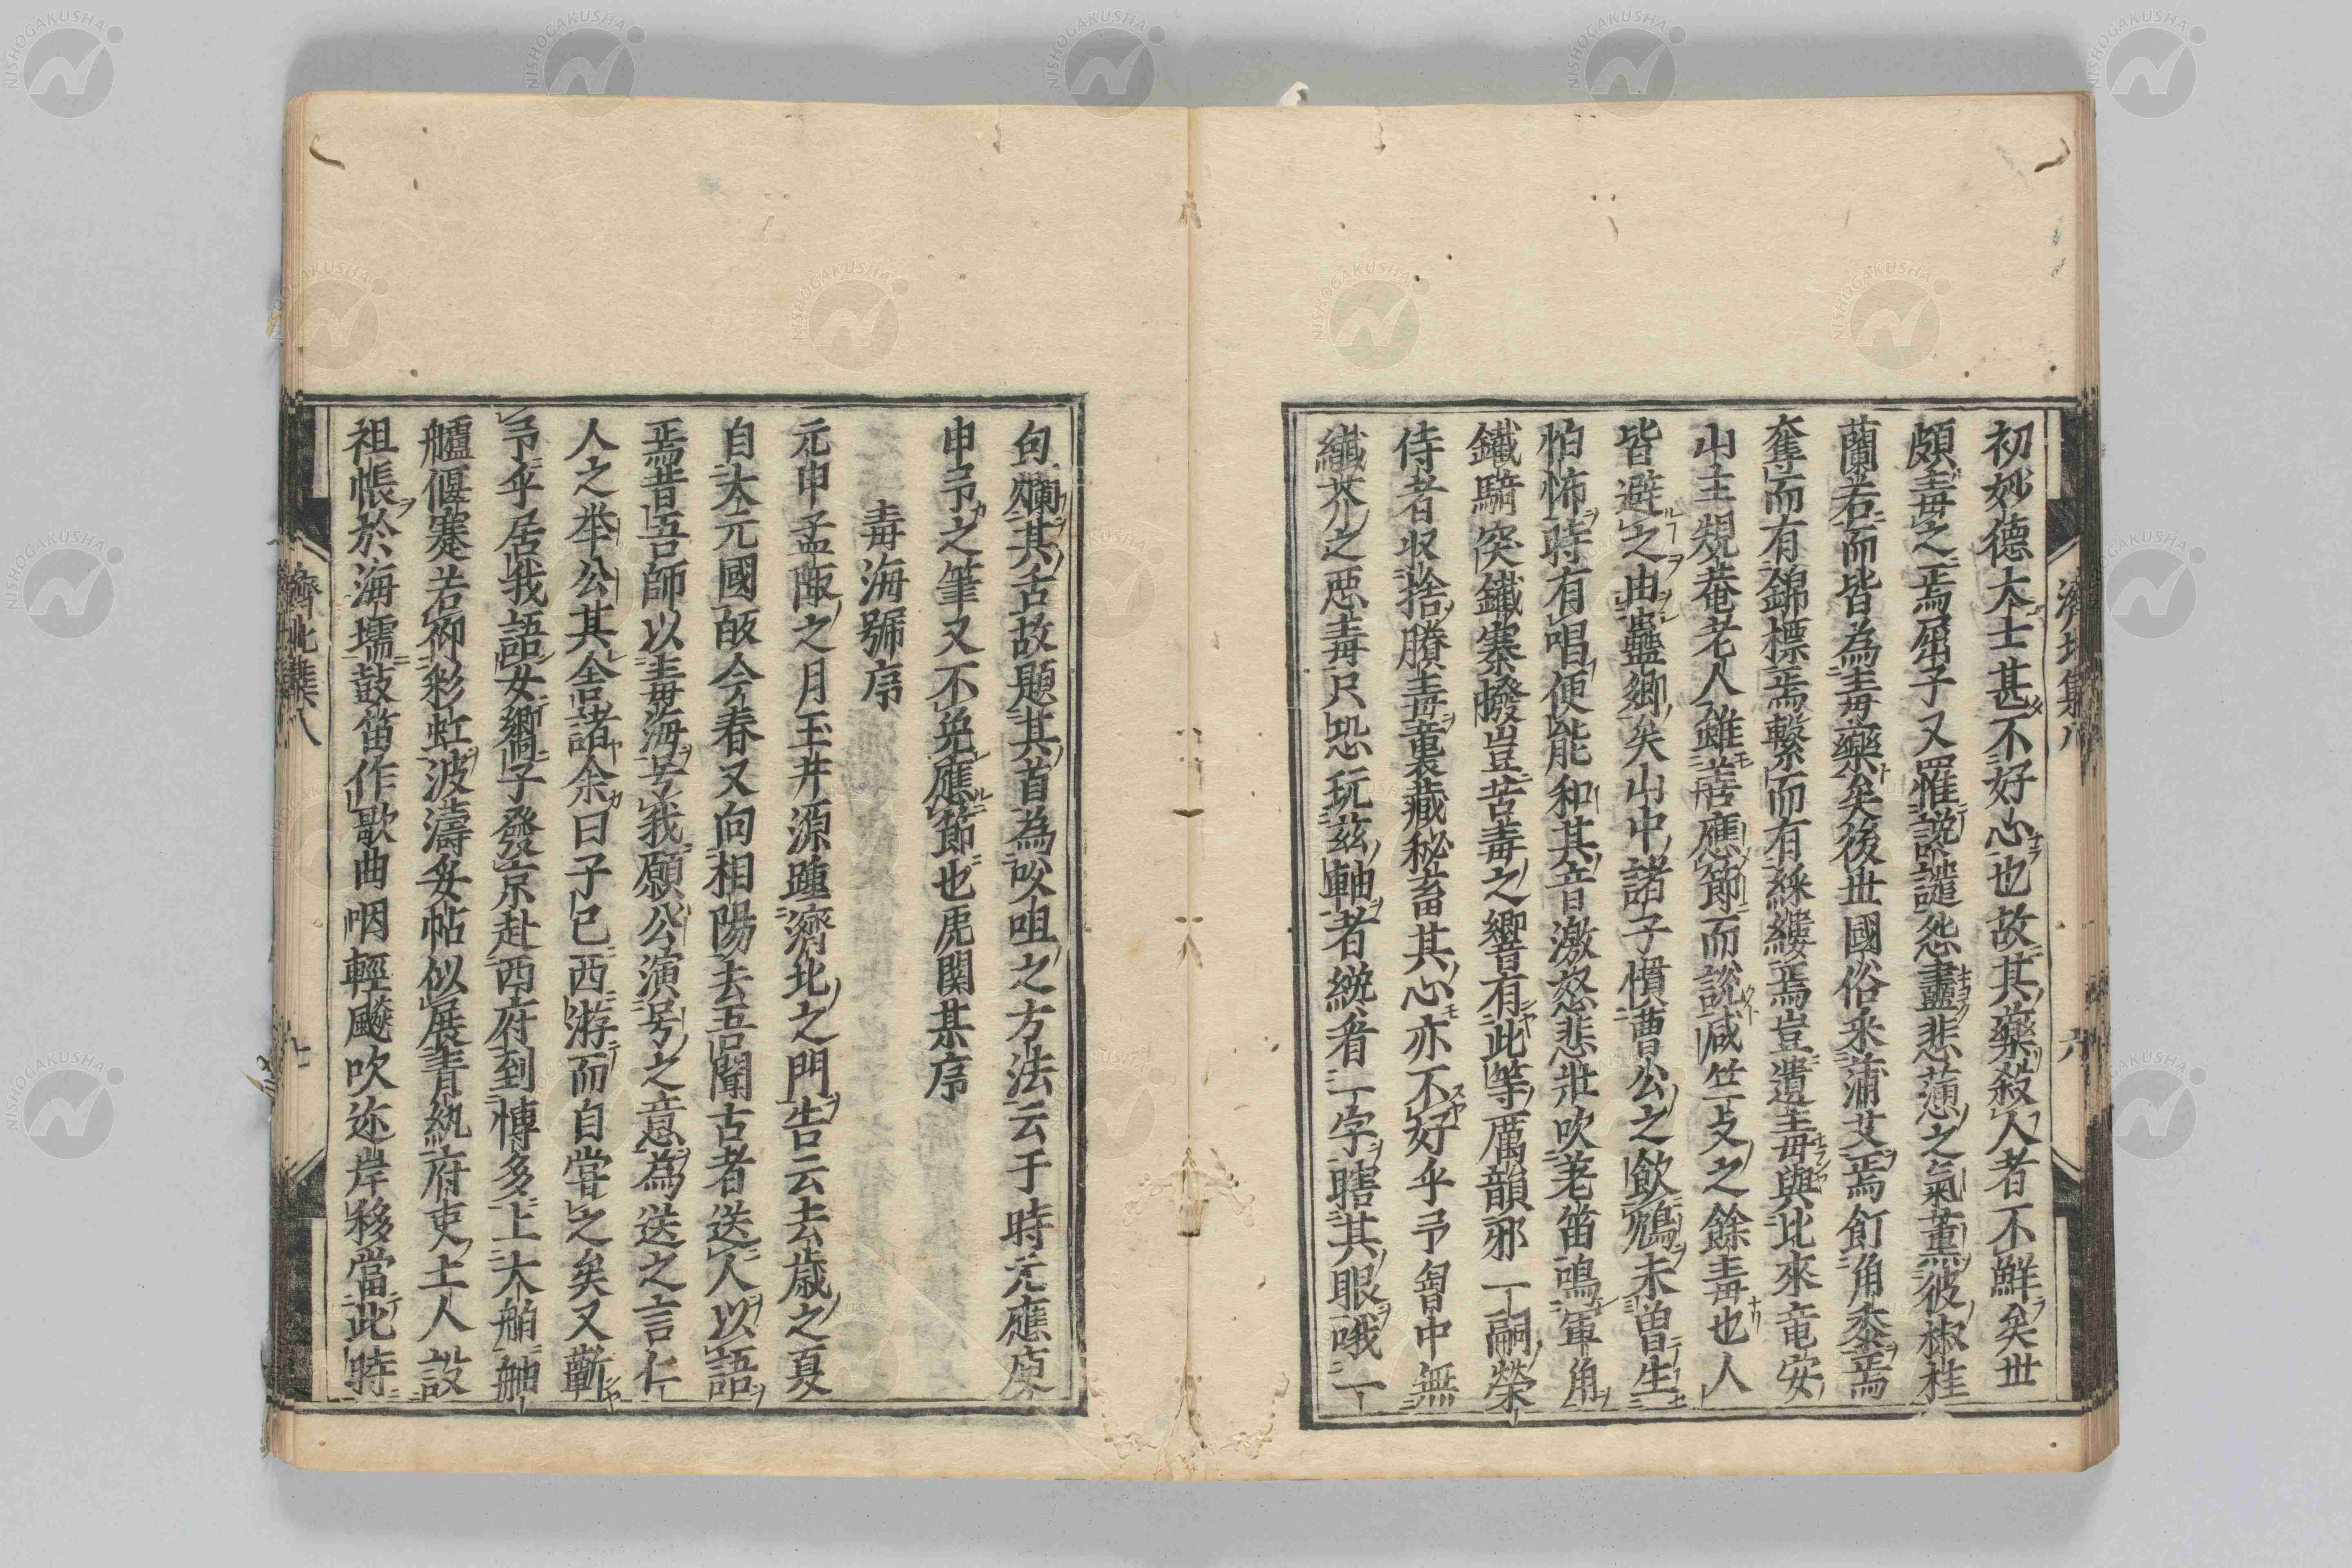 初妙德大士甚不好心也故其藥殺人者不鮮矣世
頗毒之焉屈子又罹説譴怨盡悲薀之氣薫彼椒桂
蘭若而皆為毒藥矣後世國俗釆蒲艾焉飣角黍焉
奪而有錦標焉繫而有綵縷焉豈遺毒與比來竜安
山主規菴老人雖善應節而說咸竺支之餘毒也人
皆避之由蠱鄉矣山中諸子慣曹公之飲鴆未曽生
怕怖時有唱便能和其音激怒悲壯吹老笛鳴軍角
鐵騎突鐵寨撥豈苦毒之響有此等厲韻邪一嗣榮
侍者収捨賸毒裏藏秘畜其心亦不好乎予胷中無
纎芥之惡毒只恐玩茲軸者纔看一字瞎其眼哦一
句爛其舌故題其首為㕮咀之方法云于時元應庚
申予之筆又不免應節也虎関某序
毒海號序
元申孟陬之月玉井源踵濟北之門告云去歲之夏
自大元國皈今春又向相陽去吾聞古者送人以語
焉昔吾師以毒海号我願公演号之意為送之言仁
人之举公其舍諸余曰子已西游而自嘗之矣又蘄
予乎居我語女嚮子發京赴西府到慱多上大舶舳
艫偃蹇若仰彩虹波濤妥帖似展青紈府吏士人設
祖帳於海壖鼓笛作歌曲咽輕颸吹迯岸移當此時
濟北集八 六
濟北集八 七
NISHOGAKUSHA